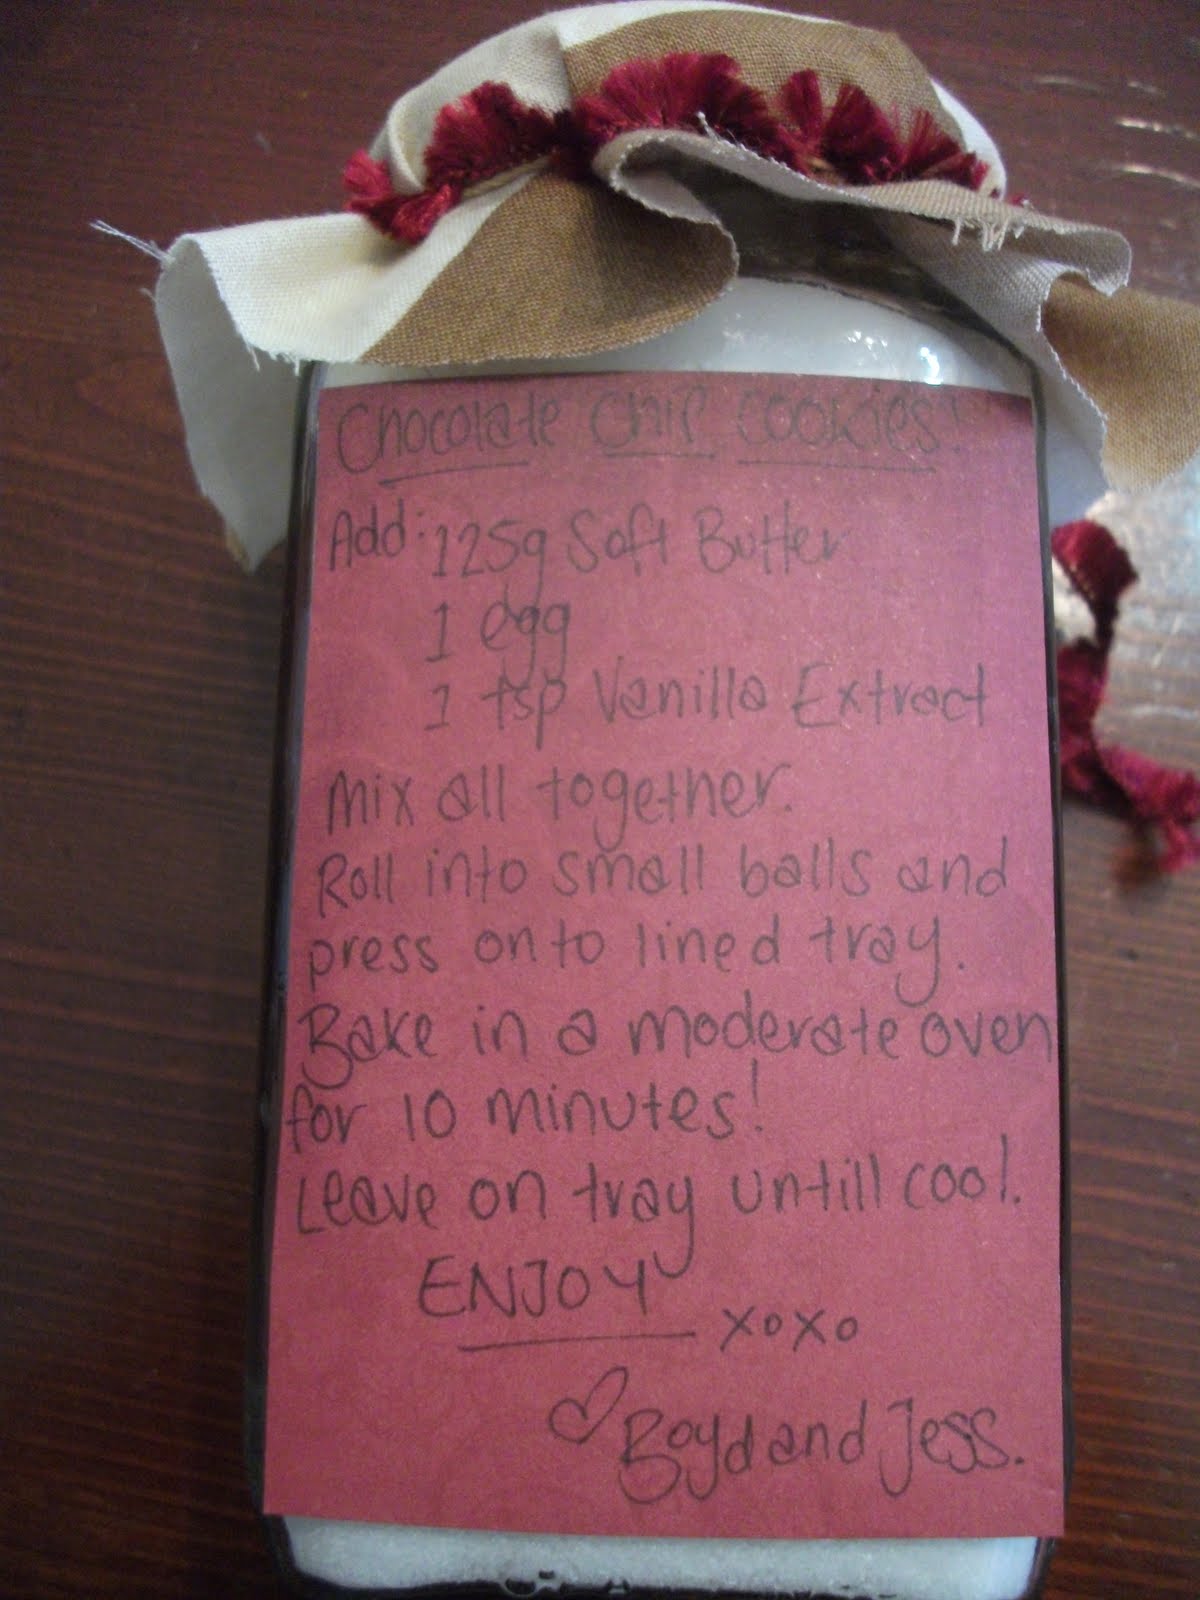 Chocolate Chip Cookies!
Add: 125g Soft Butter
1 egg
1 tsp Vanilla Extract
Mix all together.
Roll into small balls and
press onto lined tray.
Bake in a moderate oven
for 10 minutes!
Leave on tray untill cool.
ENJOY xoxo
♡ Boyd and Jess.